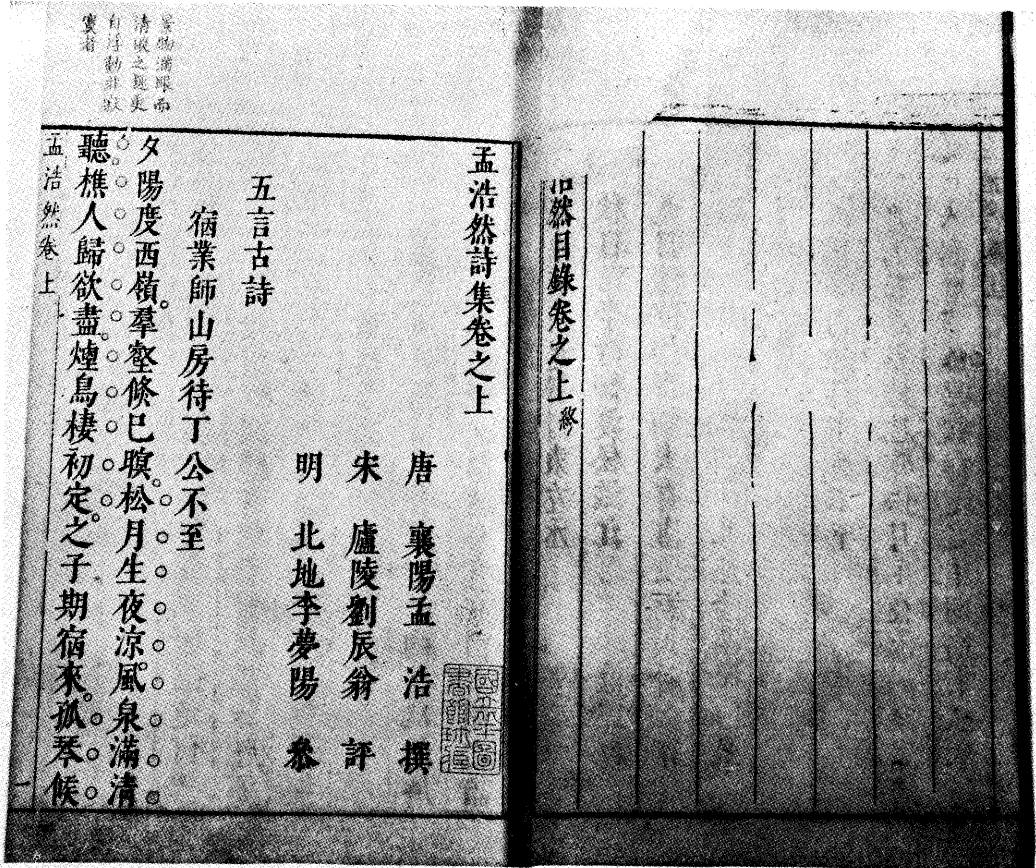 浩然目錄卷之上 終
孟浩然詩集卷之上
唐 襄陽孟 浩 撰
宋 廬陵劉辰翁 評
明 北地李夢陽 叅
國立中央圖書館珍藏
五言古詩
宿業師山房待丁公不至
夕陽度西嶺。羣壑倐已暝。松月生夜涼。風泉滿清
聽。樵人歸欲盡。煙鳥棲初定。之子期宿來。孤琴候
景物滿眼而
清 之趣更
自浮動非寂
寞者
孟浩然卷上
一